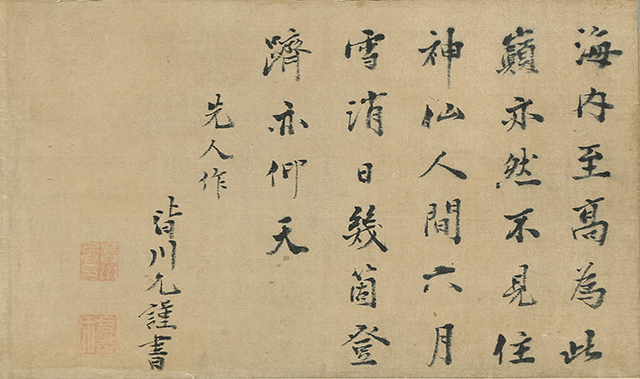 海内至高為此
巔亦然不見住
神仙人間六月
雪消日幾箇登
躋亦仰天
先人作
皆川允謹書